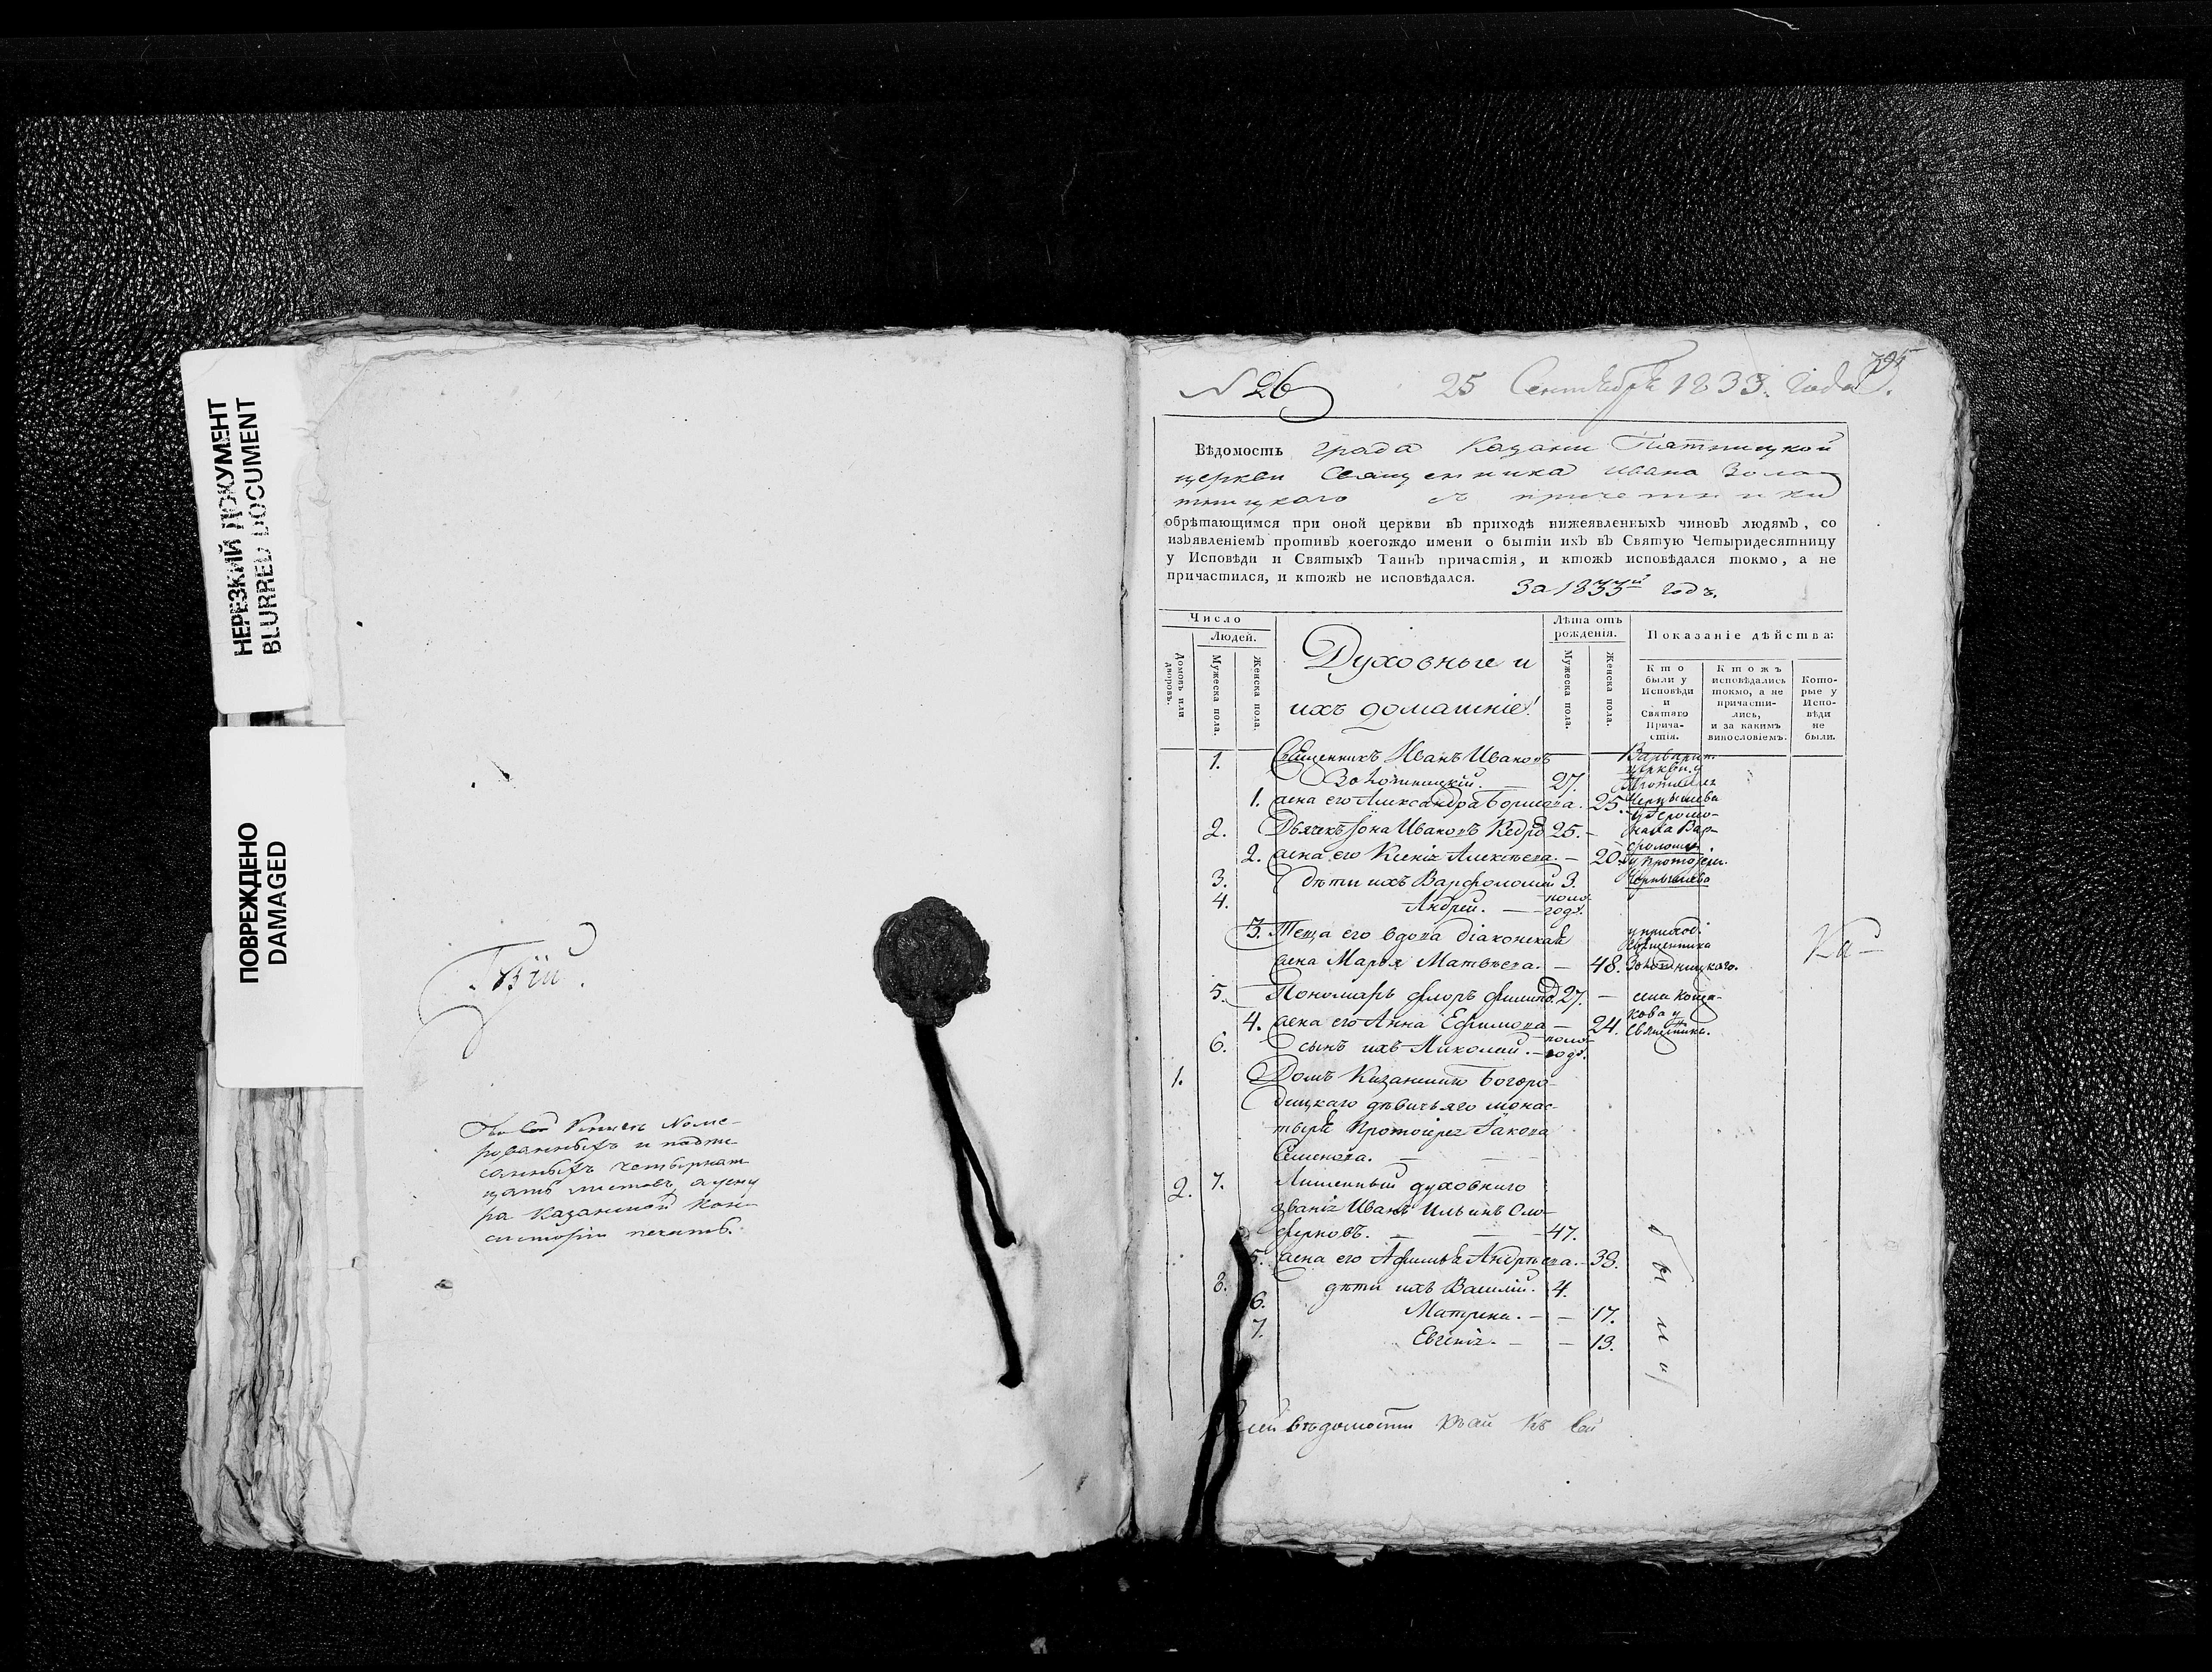 НЕРЕЗКИЙ ДОКУМЕНТ
BLURRED DOCUMENT
ПОВРЕЖДЕНО
DAMAGED
рованныхъ и подпи-
санныхъ четырнат
цать листовъ, а у сну
ра Казанской Кон-
систоріи печать.
N 26
25 Сентября 1833. года.
Вѣдомость града Казани Пятницкой
церкви Священника Ивана Золо-
тницкого съ причетники
обрѣтающимся при оной церкви въ приходѣ нижеявленныхъ чиновъ людямъ, со
изъявленіемъ противъ коегождо имени о бытіи ихъ въ Святую Четыридесятницу
у Исповѣди и Святыхъ Таинъ причастія, и ктожъ исповѣдался токмо, а не
причастился, и ктожъ не исповѣдался.
За 1833й годъ.
Число
Людей.
Домовъ или дворовъ.
Мужеска пола.
Женска пола.
Духовные и
ихъ домашніе:
Лѣта отъ рожденія.
Мужеска пола.
Женска пола.
Показаніе дѣйства:
Кто были у Исповѣди и Святаго Прича-стія.
Ктожъ исповѣдались токмо, а не причасти-лись, и за какимъ винословіемъ.
Кото-рые у Испо-вѣди не были.
1. Священникъ Иванъ Ивановъ
Золотницкій. 27.
церкви у
1. жена его Александра Борисова. 25. Чернышева
2. Дьячекъ Іона Ивановъ Кедро 25.
2. жена его Ксенія Алексѣева. 20. у Протоіерея
3. дѣти ихъ Варфоломей 3. Чернышева
4. Андрей. полгода.
3. Теща его вдова діаконская
жена Марья Матвѣева. 48. Золотницкого.
Священника
5. Пономарь Флоръ Филипо. 27.
4. жена его Анна Ефимова 24. Священника.
6. сынъ ихъ Николай. полгода.
1. Домъ Казанского Богоро-
дицкаго дѣвичьяго монас-
тыря Протоіерея Іакова
Семенова.
2. 7. Лишенный духовнаго
званія Иванъ Ильинъ Оло-
ферновъ. 47.
5. жена его Афимья Андрѣева. 38.
8. дѣти ихъ Василій. 4.
6. Матрена. 17.
7. Евгенія. 13.
были
сей вѣдомости